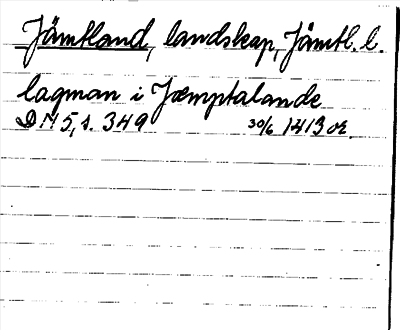 Jämtland, landskap, Jämtl. l.
lagman i Jæmptalande
DN 5, s. 349 30/6 1413 or.